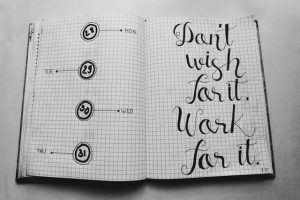 29
MON
TUE
29
30
WED
THU
31
Don't
wish
for it.
Work
for it.